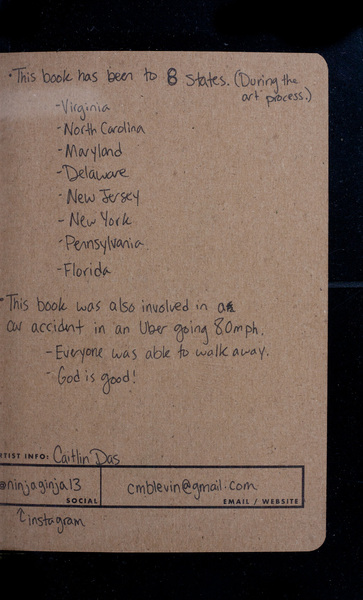 • This book has been to 8 states. (During the
art process.)
- Virginia
- North Carolina
- Maryland
- Delaware
- New Jersey
- New York
- Pennsylvania
- Florida
• This book was also involved in a
car accident in an Uber going 80mph.
- Everyone was able to walk away.
- God is good!
TIST INFO: Caitlin Das
@ninjaginja13 cmblevin@gmail.com
SOCIAL EMAIL / WEBSITE
↑instagram